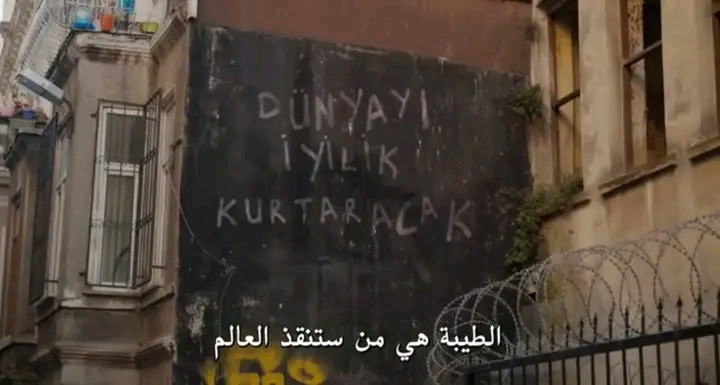 DÜNYAYI
İYİLİK
KURTARACAK
الطيبة هي من ستنقذ العالم